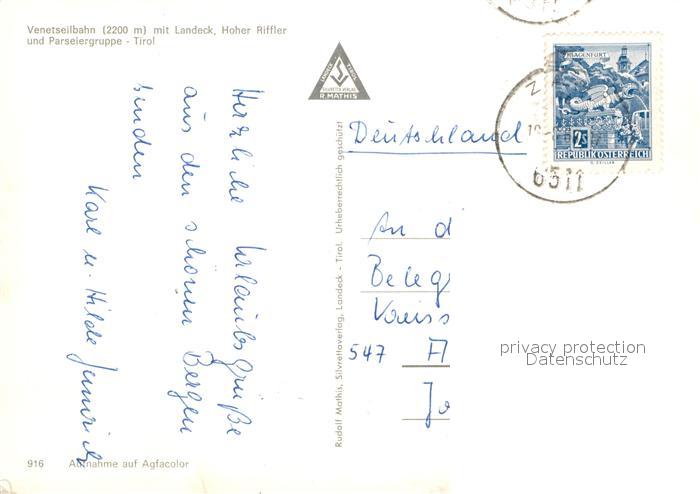 Venetseilbahn (2200 m) mit Landeck, Hoher Riffler
und Parseiergruppe - Tirol
Herzliche Urlaubsgrüße
aus den schönen Bergen
senden
Karl u. Hilde
LANDECK TIROL
SILVRETTA VERLAG
R. MATHIS
Rudolf Mathis, Silvrettaverlag, Landeck - Tirol. Urheberrechtlich geschützt!
KLAGENFURT
2S
REPUBLIK ÖSTERREICH
6511
Deutschland
An d
Beleg
547
privacy protection
Datenschutz
916 Aufnahme auf Agfacolor